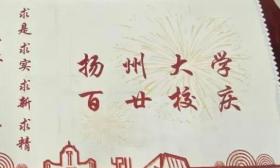 扬州大学
百廿校庆
求是求实求新求精